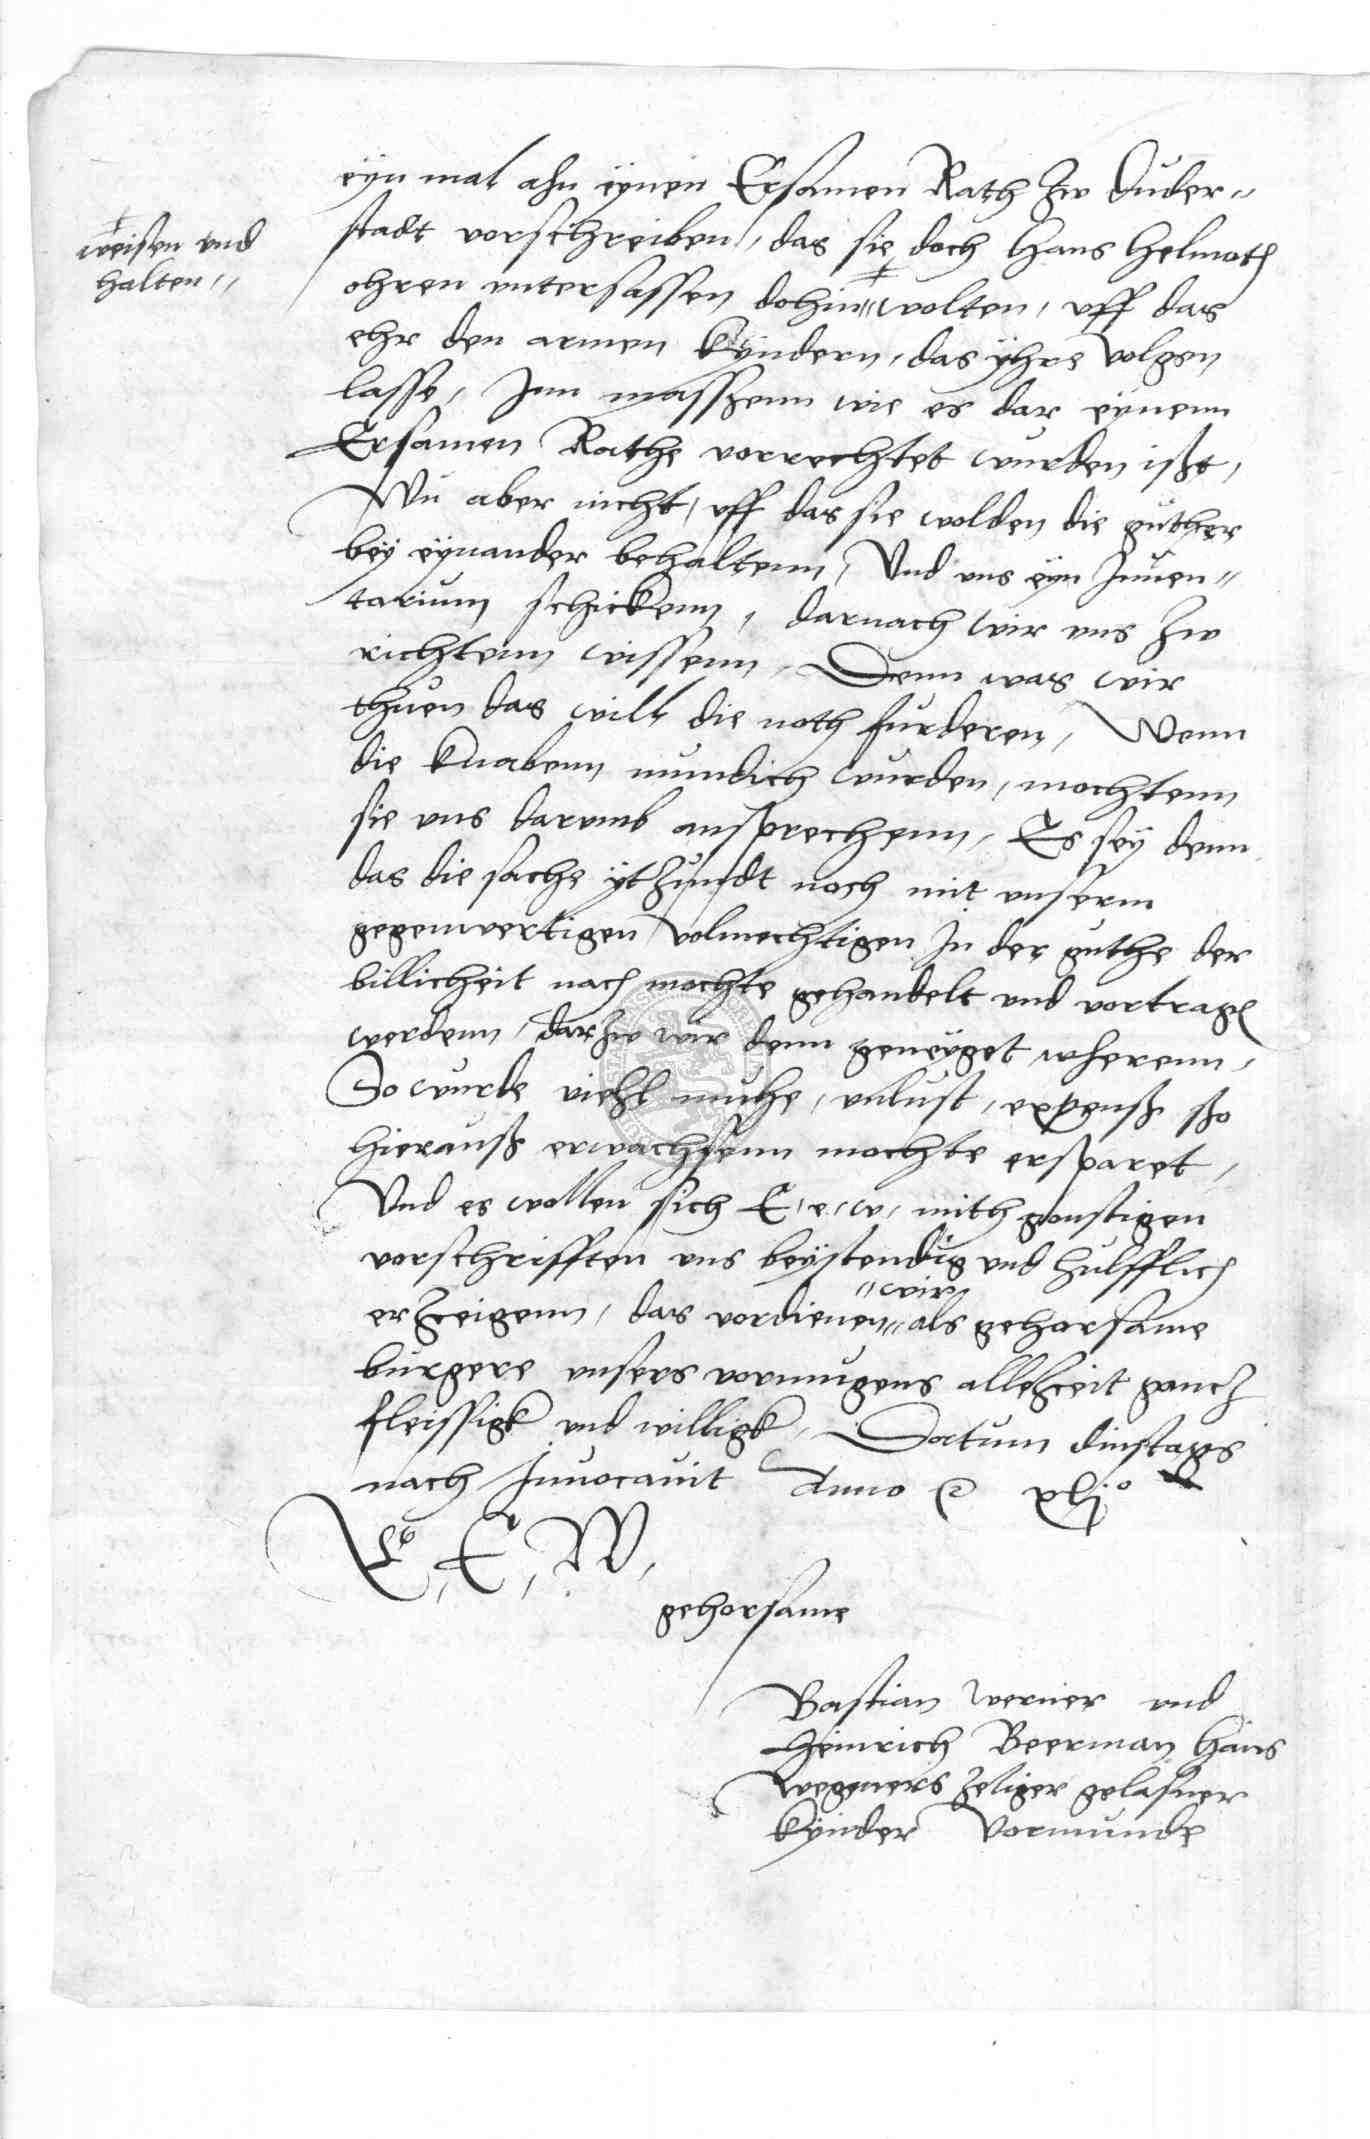 eyn mal ahn eynen Ersamen Rath zw Duder-
stadt vorschreiben, das sie doch Hans Helmoth
weisen vnd
halten,,
ohren vntersassen dohin,, wolten, vff das
ehr den armen kyndern, das yhre volgen
lasse, Jnn masszenn wie es dar eynenn
Ersamen Rathe vorrechtet wurden ißt,
Wu aber nicht, vff das sie wolden die guther
bey eynander behaltenn, Vnd vns eyn Jnuen-
tarium schickenn, darnach wir vns zw
richtenn wissenn, Denn was wir
thuen das will die noth furderen, Wenn
die knabenn mundich wurden, mochtenn
sie vns darvmb ansprechenn, Es sey denn
das die sache ytzundt noch mit vnserm
gegenwertigen volmechtigen Jn der guthe der
billicheit nach mochte gehandelt vnd vortragen
werdenn, dar zw wir denn geneyget wherenn,
So wurde viehl muhe, vnlust, expenß ßo
hierauß erwachssenn mochte ersparet,
Vnd es wollen sich E, e, w, mith gonstigen
vorschrifften vns beystendig vnd hulfflich
erzceigenn, das vordienen,, wir,, als gehorsame
burgere vnsers vormugens allezceit gancz
fleissigk vnd willigk, Datum dinstags
nach Jnuocauit Anno xljo
E, E, W,
gehorsame
Bastian Werner vnd
Heinrich Beerman Hans
Wegeners zeliger gelasner
kynder Vormunde